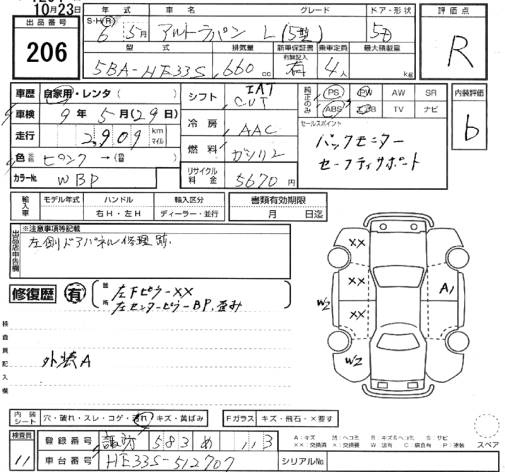 10月23日
出品番号
206
年式 車名 グレード ドア・形状
S・H・R 6年 5月 アルトラパン L(5型) 5D
型式 排気量 新車保証書 乗車定員 最大積載量
有無記入
5BA-HE33S 660 cc 有 4人 kg
評価点
R
車歴 自家用・レンタ( )
車検 9年5月(29日)
走行 2,909 km マイル
色 ピンク → (
カラーNo. WBP
シフト IAT CVT
冷房 AAC
燃料 ガソリン
リサイクル料金 5670円
純正のみ PS PW AW SR
ABS エアB TV ナビ
セールスポイント
バックモニター
セーフティサポート
内装評価
b
輸入車 モデル年式 ハンドル 輸入区分
右H・左H ディーラー・並行
書類有効期限
月 日迄
出品店申告欄
※注意事項等記載
左側ドアパネル修理跡.
修復歴 有 箇所
左Fピラー××
左センターピラーBP,歪み
検査員記入欄
外装A
××
××
××
W2
W2
A1
内装シート 穴・破れ・スレ・コゲ・汚れ・キズ・黄ばみ
Fガラス キズ・飛石・×要す
検査員
11
登録番号 諏訪 583 め 113
車台番号 HE33S-512707
シリアルNo.
A:キズ U:ヘコミ B:キズ&ヘコミ S:サビ
××:交換済 X:要交換 W:波有 C:腐食有 P:要塗装
スペア